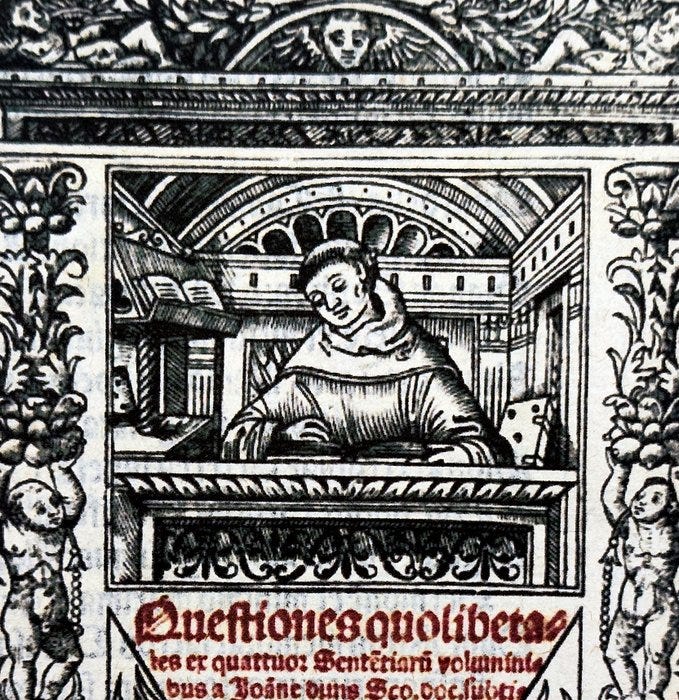 Questiones quolibeta⸗
les ex quattuor Sentētiarū volumini⸗
bus a Joāne duns Sco. doc. subti⸗